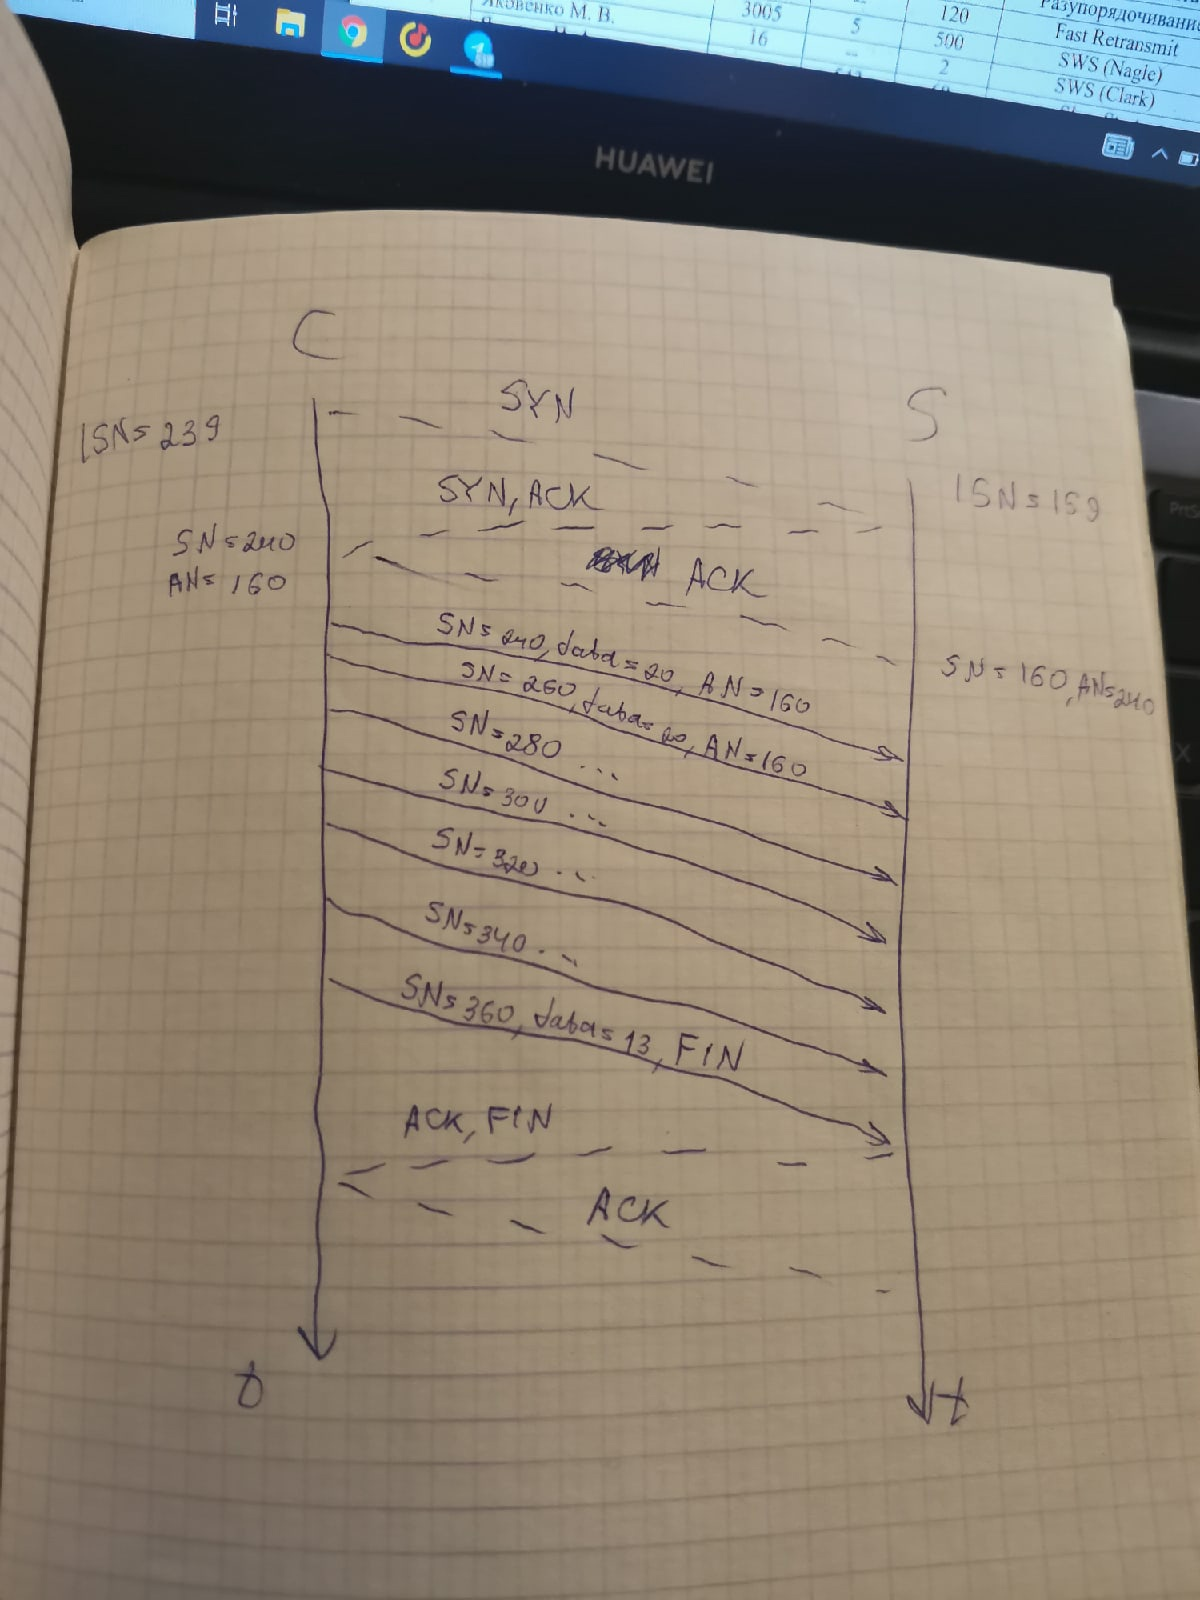 Яковенко М. В.
3005
5
120
Разупорядочивание
16
500
Fast Retransmit
2
SWS (Nagle)
SWS (Clark)
HUAWEI
C
SYN
S
ISN=239
SYN, ACK
ISN=159
SN=240
AN=160
ACK
SN=240, data=20, AN=160
SN=160, AN=240
SN=260, data=20, AN=160
SN=280 ...
SN=300 ...
SN=320 ...
SN=340 ...
SN=360, data=13, FIN
ACK, FIN
ACK
t
t